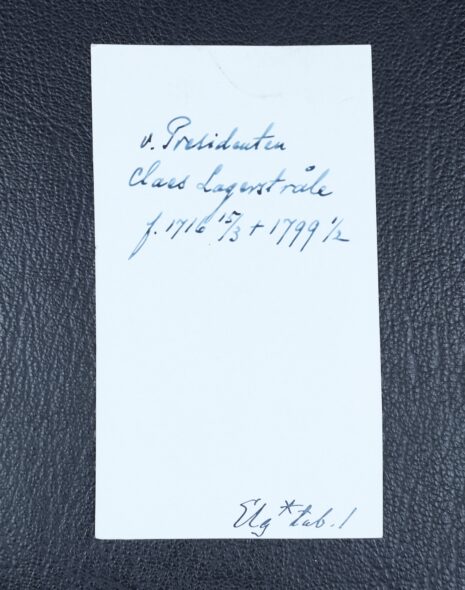 v. Presidenten
Claes Lagerstråle
f. 1716 15/3 + 1799 1/2
Elg * tab. 1